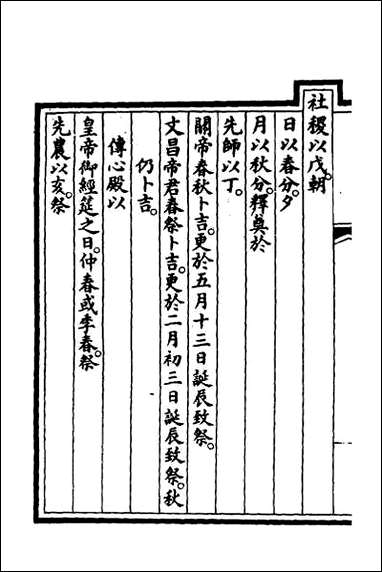 社稷以戊。朝
日以春分。夕
月以秋分。釋奠於
先師以丁。
關帝春秋卜吉。更於五月十三日誕辰致祭。
文昌帝君春祭卜吉。更於二月初三日誕辰致祭。秋
仍卜吉。
傳心殿以
皇帝御經筵之日。仲春或季春。祭
先農以亥。祭